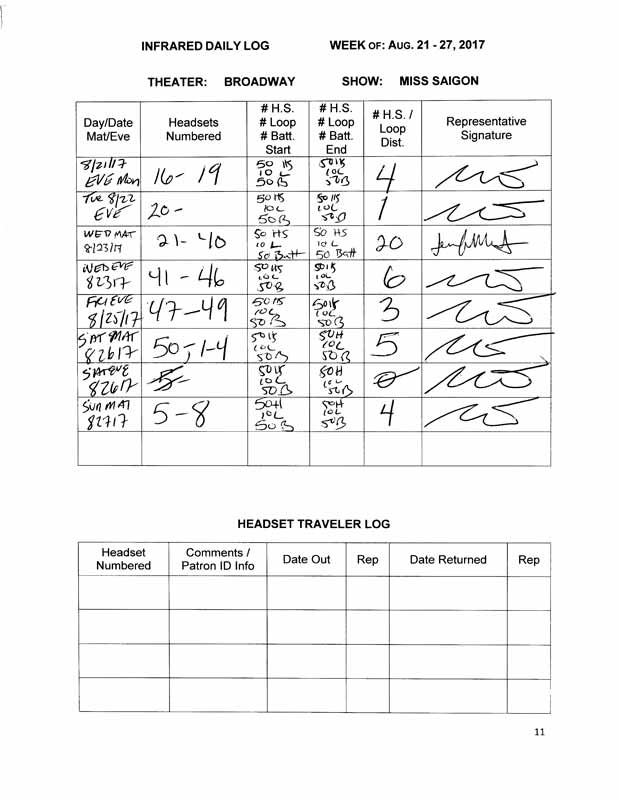 INFRARED DAILY LOG WEEK OF: AUG. 21 - 27, 2017
THEATER: BROADWAY SHOW: MISS SAIGON
Day/Date Mat/Eve Headsets Numbered # H.S. # Loop # Batt. Start # H.S. # Loop # Batt. End # H.S. / Loop Dist. Representative Signature
8/21/17 EVE Mon 16- 19 50 HS 10 L 50 B 50 HS 10L 50B 4
Tue 8/22 EVE 20- 50 HS 10L 50 B 50 HS 10L 50B 1
WED MAT 8/23/17 21- 40 50 HS 10 L 50 Batt 50 HS 10 L 50 Batt 20
WED EVE 82317 41 - 46 50 HS 10L 50B 50 HS 10L 50B 6
FRI EVE 8/25/17 47-49 50 HS 10L 50 B 50 HS 10L 50B 3
SAT MAT 82617 50, 1-4 50 HS 10L 50B 50H 10L 50B 5
SAT EVE 82617 5- 50 HS 10L 50B 50H 10L 50B 0
SUN MAT 82717 5-8 50H 10L 50B 50H 10L 50B 4
HEADSET TRAVELER LOG
Headset Numbered Comments / Patron ID Info Date Out Rep Date Returned Rep
11